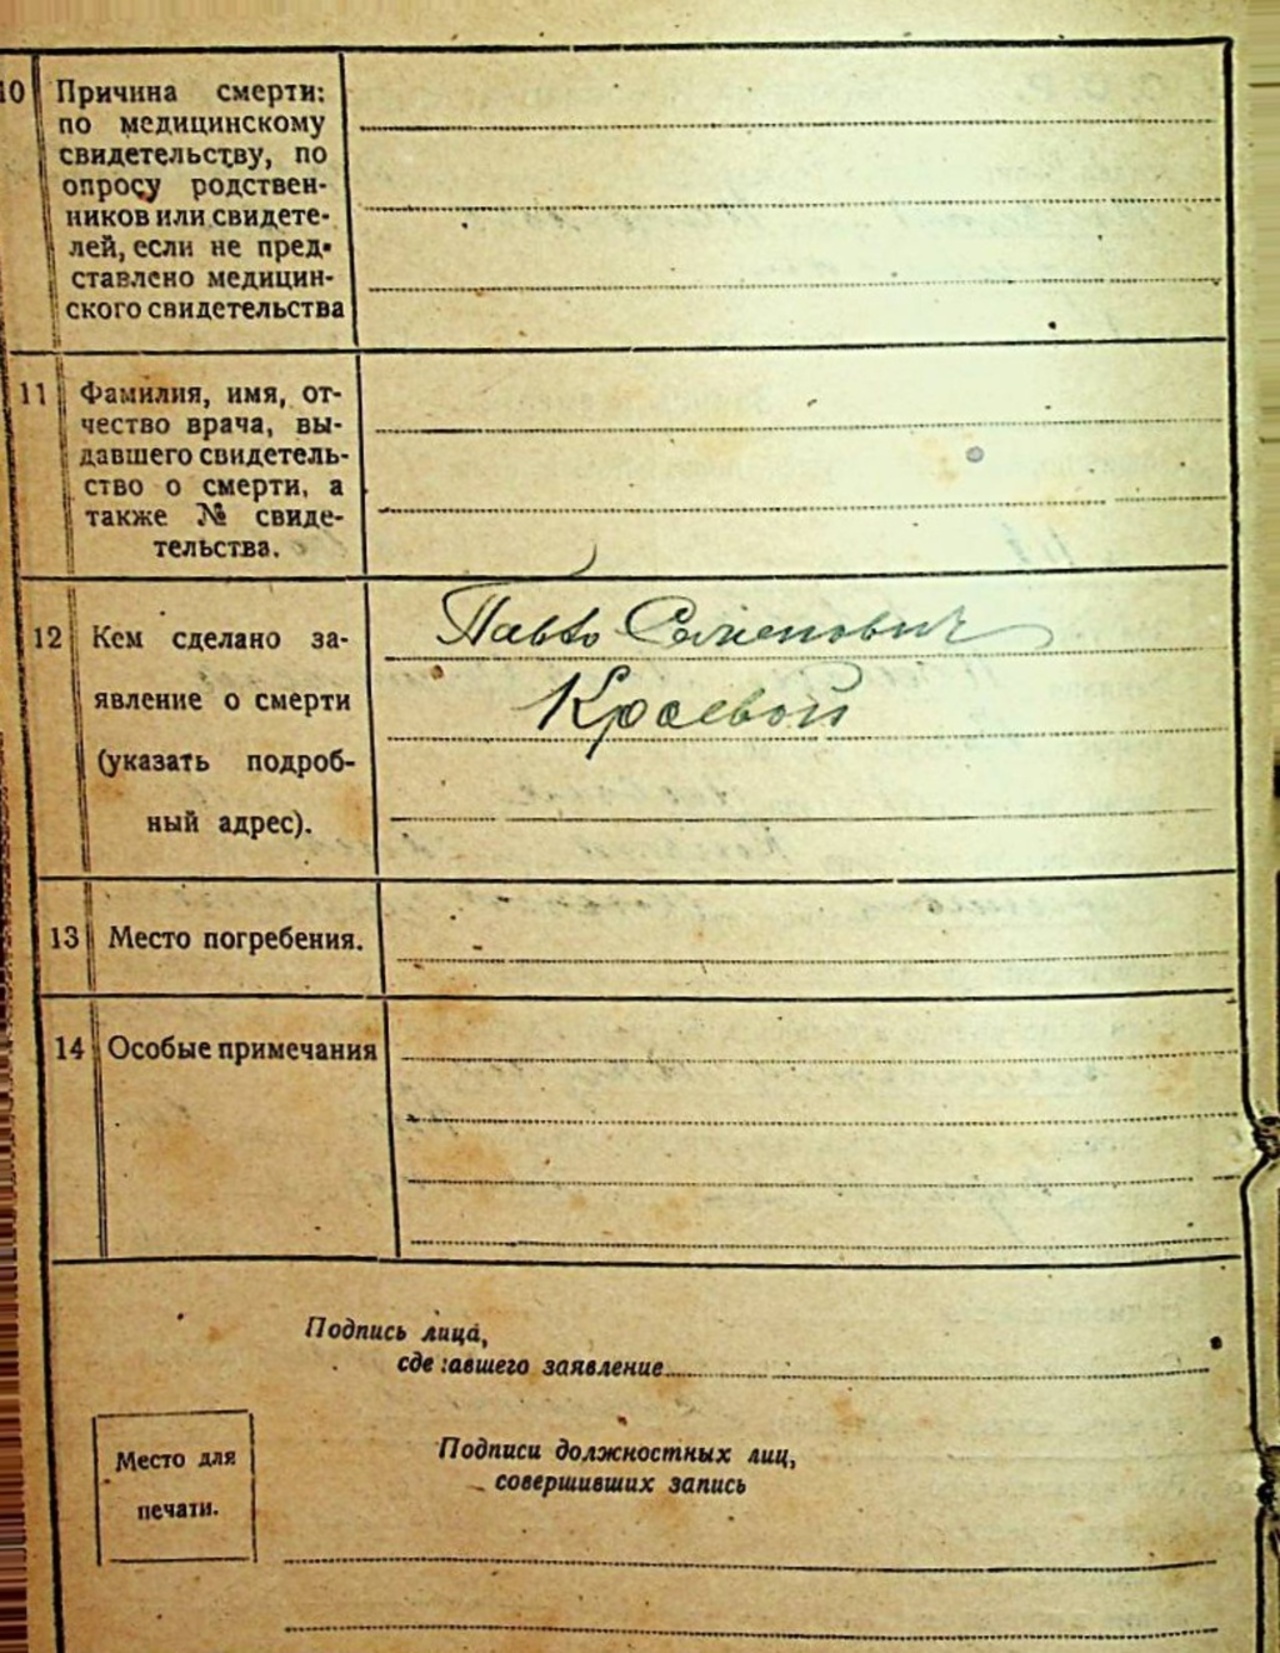 10 Причина смерти:
по медицинскому
свидетельству, по
опросу родствен-
ников или свидете-
лей, если не пред-
ставлено медицин-
ского свидетельства
11 Фамилия, имя, от-
чество врача, вы-
давшего свидетель-
ство о смерти, а
также № свиде-
тельства.
12 Кем сделано за-
явление о смерти
(указать подроб-
ный адрес).
Павло Семенович
Краевой
13 Место погребения.
14 Особые примечания
Подпись лица,
сде авшего заявление
Место для
печати.
Подписи должностных лиц,
совершивших запись